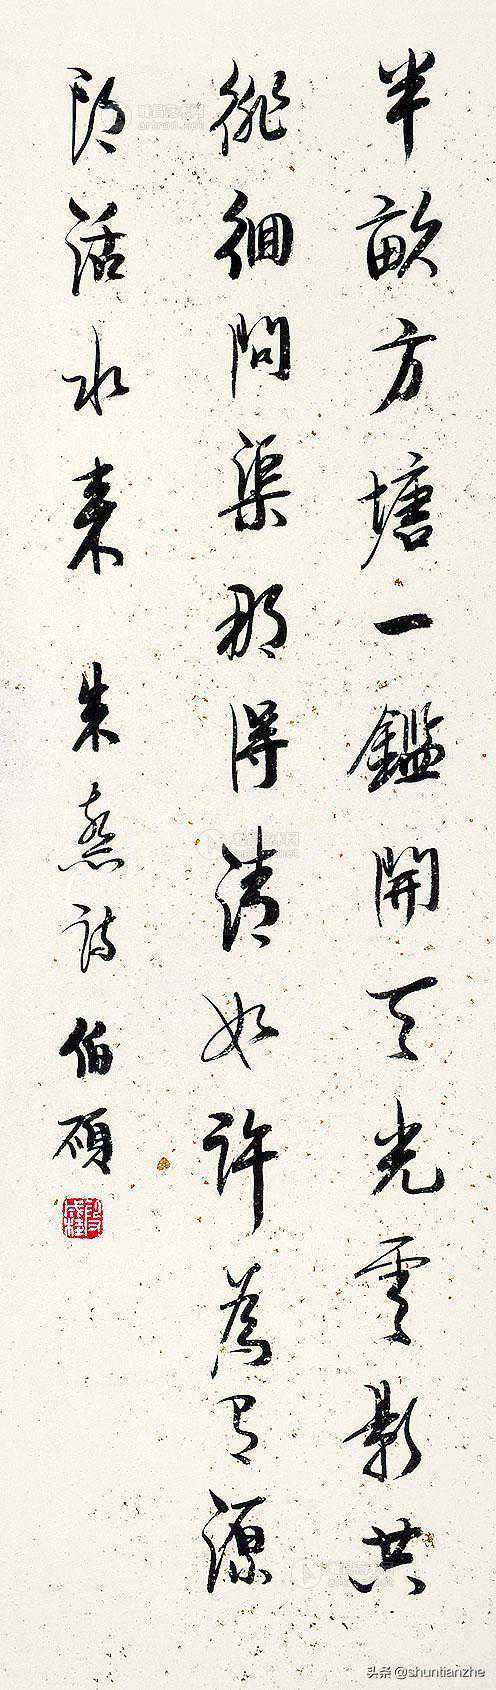 半畝方塘一鑑開天光雲影共
徘徊問渠那得清如許為有源
頭活水來 朱熹詩 伯碩
段成桂
头条@shuntianzhe